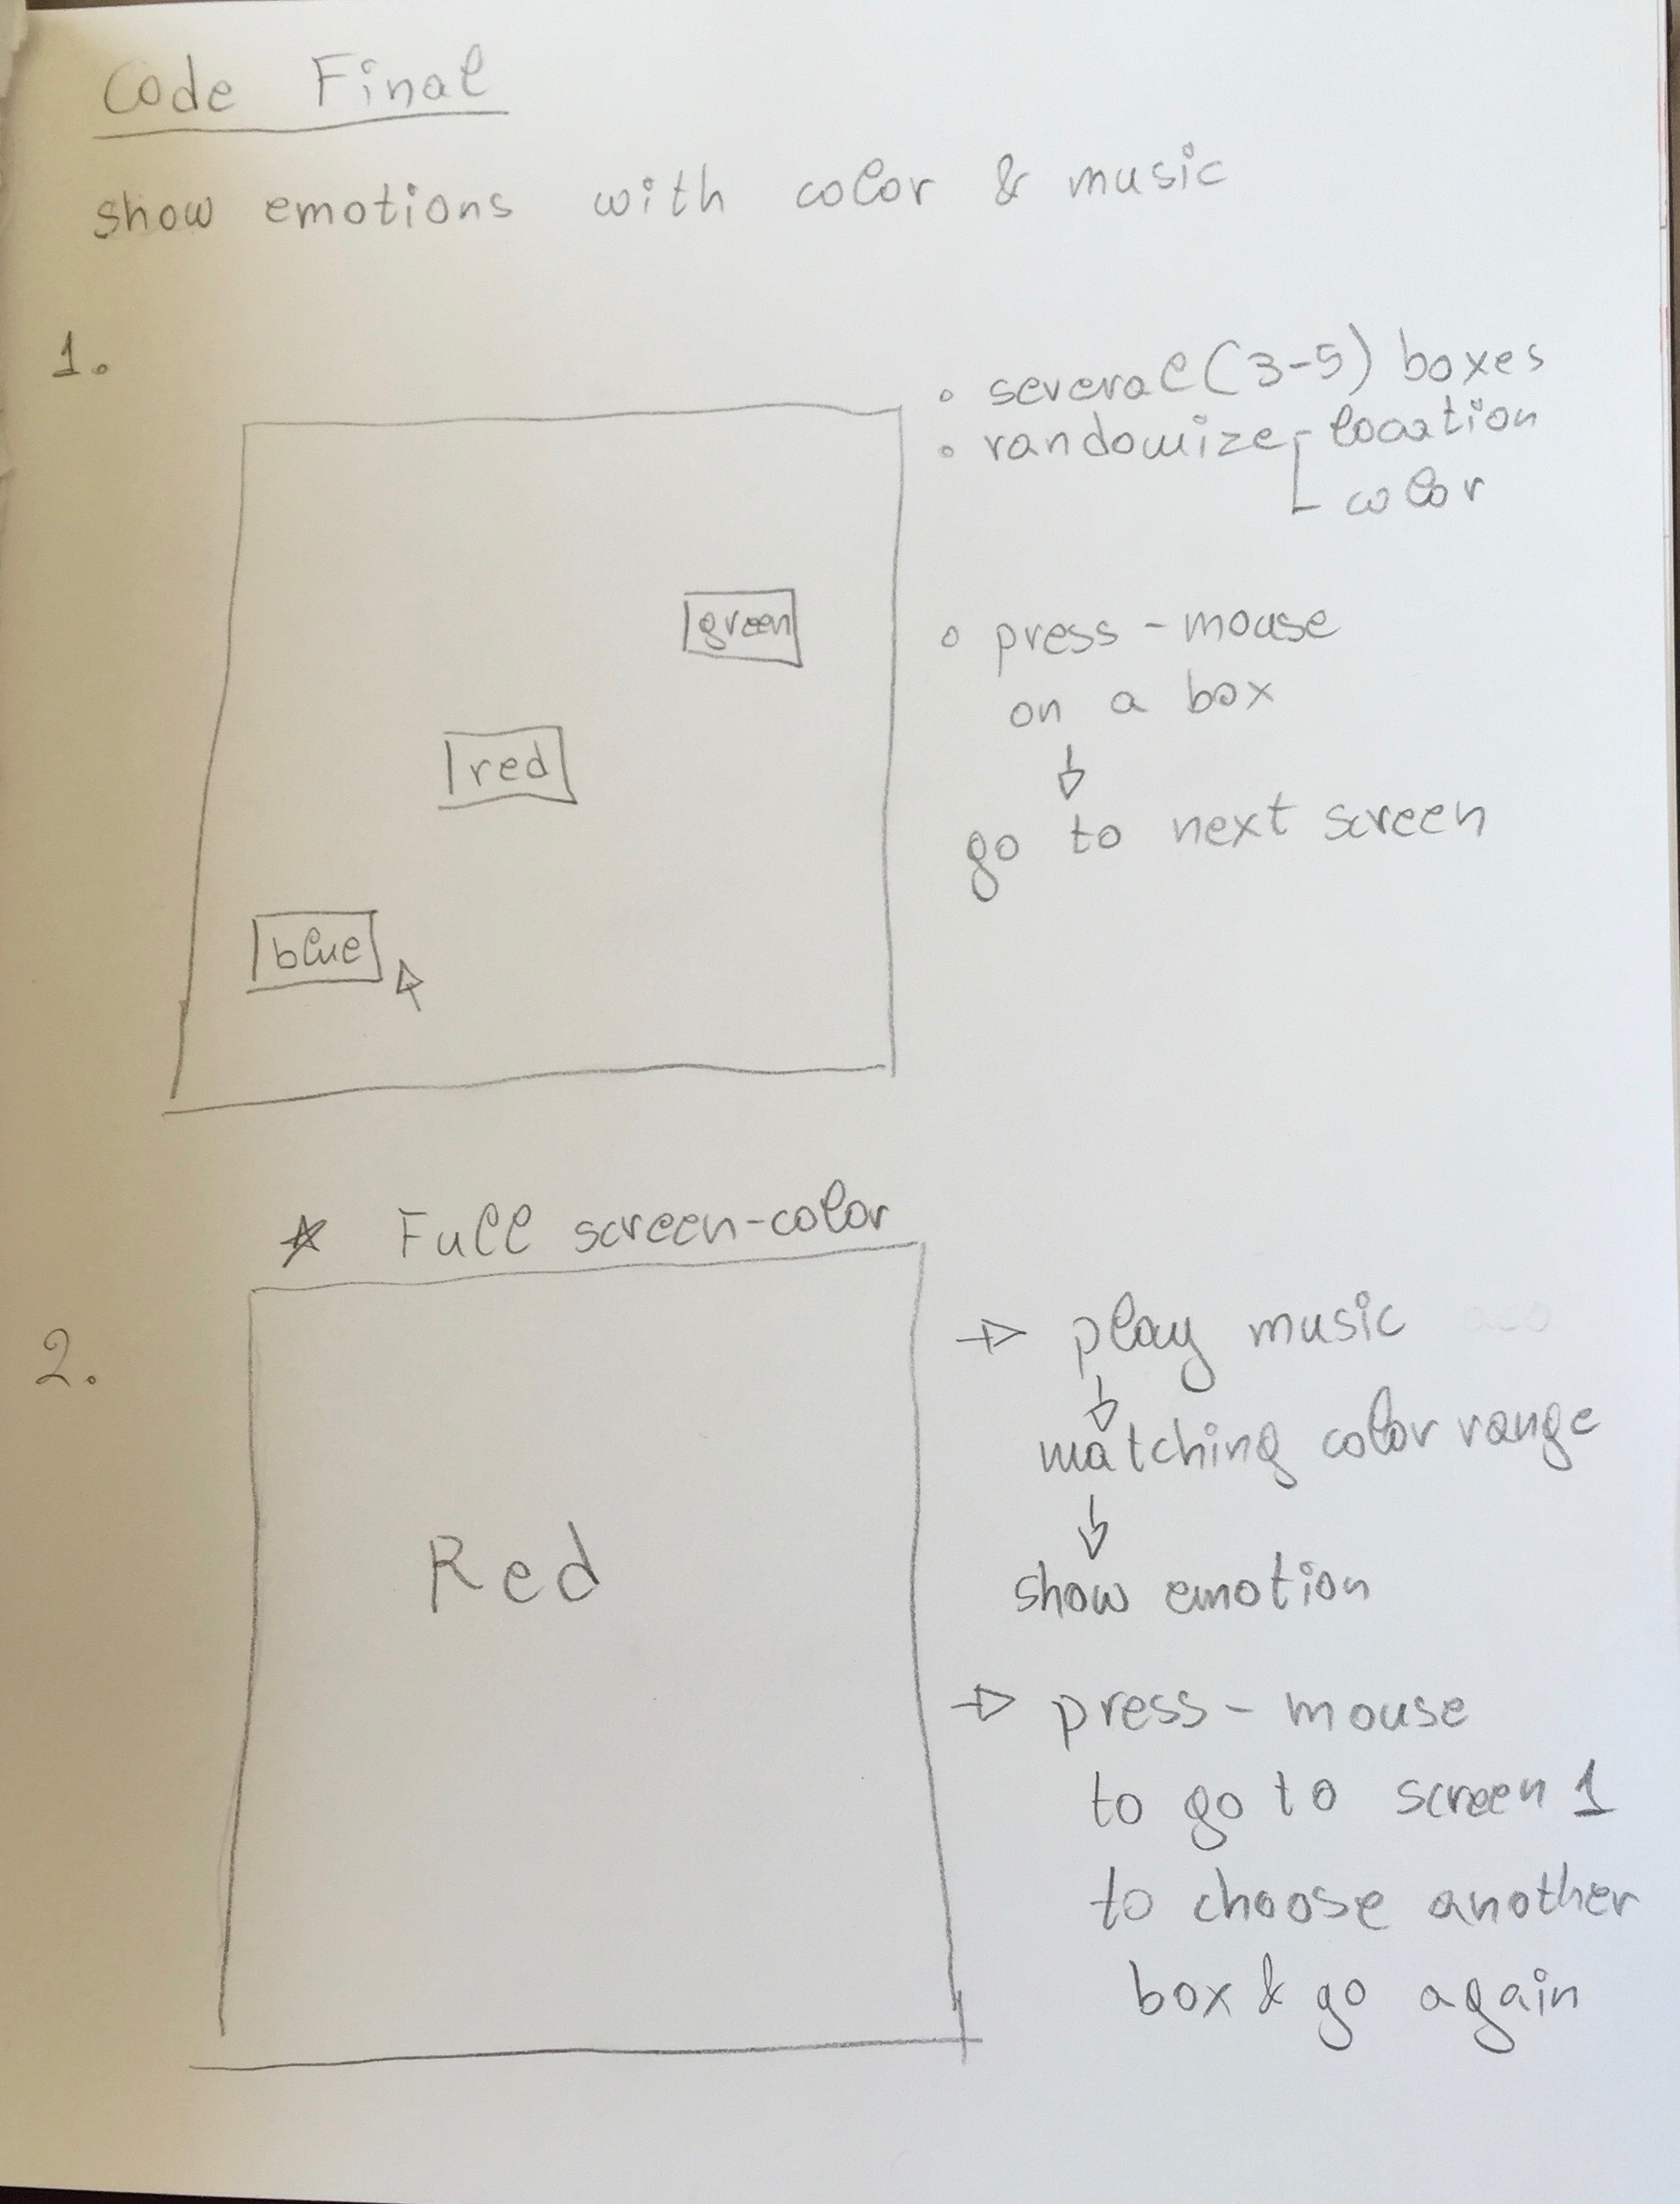 Code Final
show emotions with color & music
1.
• several (3-5) boxes
• randomize location
color
green
• press - mouse
on a box
red
go to next screen
blue
* Full screen-color
2.
play music
matching color range
Red
show emotion
press - mouse
to go to screen 1
to choose another
box & go again